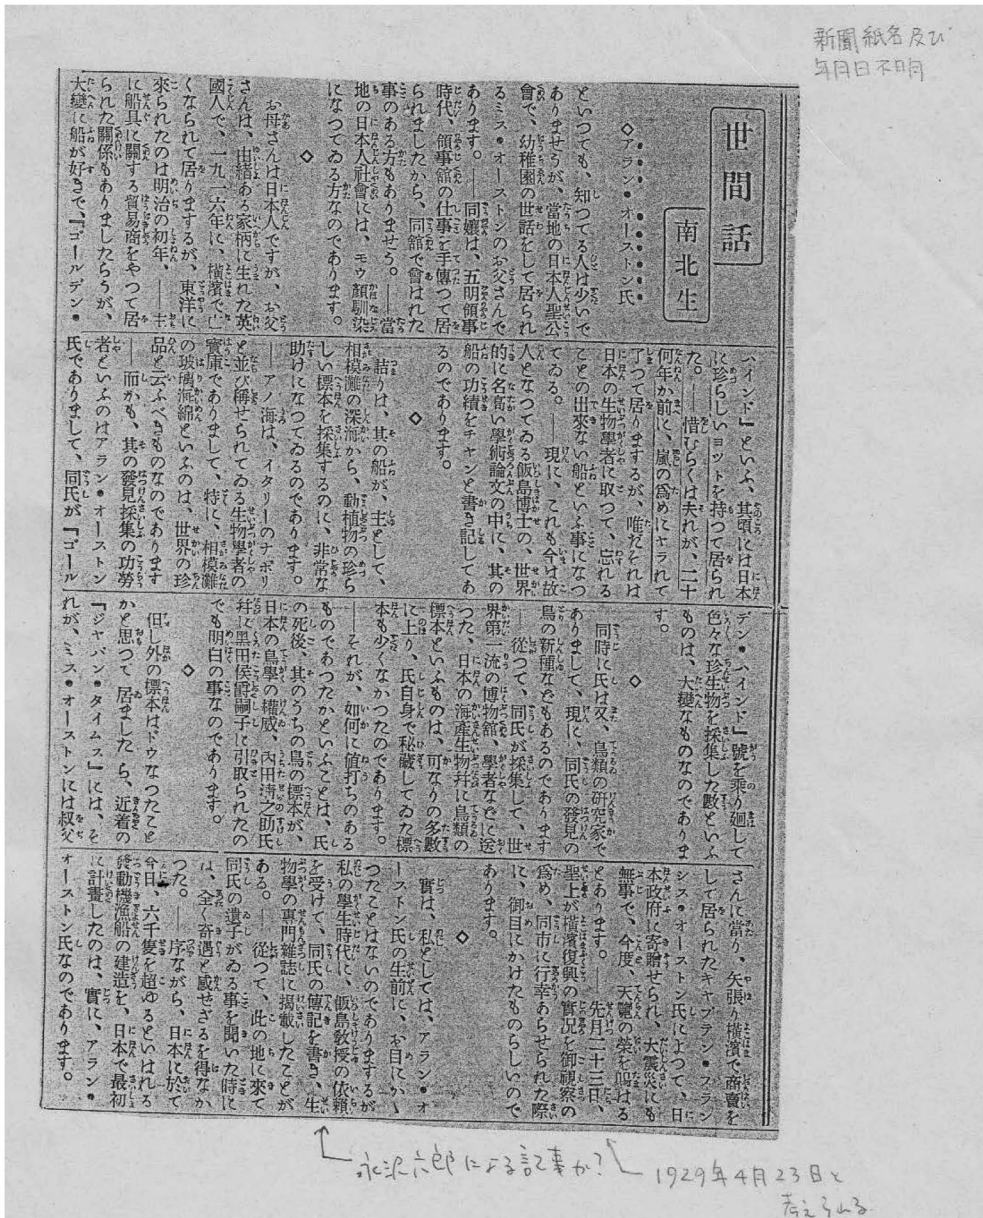 新聞紙名及び
年月日不明
世間話
南北生
◇アラン・オーストン氏
といつても、知つてる人は少いで
ありませうが、當地の日本人聖公
會で、幼稚園の世話をして居られ
るミス・オーストンのお父さんで
あります。――同孃は、五明領事
時代、領事館の仕事を手傳つて居
られましたから、同館で會はれた
事のある方もありませう。――當
地の日本人社會には、モウ顏馴染
になつてゐる方なのであります。
◇
お母さんは日本人ですが、お父
さんは、由緖ある家柄に生れた英
國人で、一九一六年に、橫濱で亡
くなられて居りますが、東洋に
來られたのは明治の初年、――主
に船具に關する貿易商をやつて居
られた關係もありましたらうが、
大變に船が好きで、『ゴールデン・
ハインド』といふ、其頃には日本
に珍らしいヨットを持つて居られ
た。――惜むらくは夫れが、二十
何年か前に、嵐の爲めにヤラれて
了つて居りまするが、唯だそれは
日本の生物學者に取つて、忘れる
ことの出來ない船といふ事になつ
てゐる。――現に、これも今は故
人となつてゐる飯島博士の、世界
的に名高い學術論文の中に、其の
船の功績をチャンと書き記してあ
るのであります。
◇
詰りは、其の船が、主として、
相模灘の深海から、動植物の珍ら
しい標本を採集するのに、非常な
助けになつてゐるのであります。
――アノ海は、イタリーのナポリ
と並び稱せられてゐる生物學者の
寶庫でありまして、特に、相模灘
の玻璃海綿といふのは、世界の珍
品と云ふべきものなのであります
――而かも、其の發見採集の功勞
者といふのはアラン・オーストン
氏でありまして、同氏が『ゴール
デン・ハインド』號を乘り廻して
色々な珍生物を採集した數といふ
ものは、大變なものなのでありま
す。
◇
同時に氏は又、鳥類の研究家で
ありまして、現に、同氏の發見の
鳥の新種などもあるのであります
――從つて、同氏が採集して、世
界第一流の博物館、學者などに送
つた、日本の海產生物幷に鳥類の
標本といふものは、可なりの多數
に上り、氏自身で秘藏してゐた標
本も少くなかつたのであります。
――それが、如何に値打ちのある
ものであつたかといふことは、氏
の死後、其のうちの鳥の標本が、
日本の鳥學の權威、內田淸之助氏
幷に黑田侯爵嗣子に引取られたの
でも明白の事なのであります。
◇
但し外の標本はドウなつたこと
かと思つて居ましたら、近着の
『ジャパン・タイムス』には、そ
れが、ミス・オーストンには叔父
さんに當り、矢張り橫濱で商賣を
して居られたキャプテン・フラン
シス・オーストン氏によつて、日
本政府に寄贈せられ、大震災にも
無事で、今度、天覽の榮を賜はる
とあります。――先月二十三日、
聖上が橫濱復興の實況を御視察の
爲め、同市に行幸あらせられた際
に、御目にかけたものらしいので
あります。
◇
實は、私としては、アラン・オ
ーストン氏の生前に、お目にかゝ
つたことはないのでありまするが
私の學生時代に、飯島敎授の依賴
を受けて、同氏の傳記を書き、生
物學の專門雜誌に揭載したことが
ある。――從つて、此の地に來て
同氏の遺子がゐる事を聞いた時に
は、全く奇遇と感ぜざるを得なか
つた。――序ながら、日本に於て
今日、六千隻を超ゆるといはれる
發動機漁船の建造を、日本で最初
に計畫したのは、實に、アラン・
オーストン氏なのであります。
永沢六郎による記事か?
1929年4月23日と
考えられる